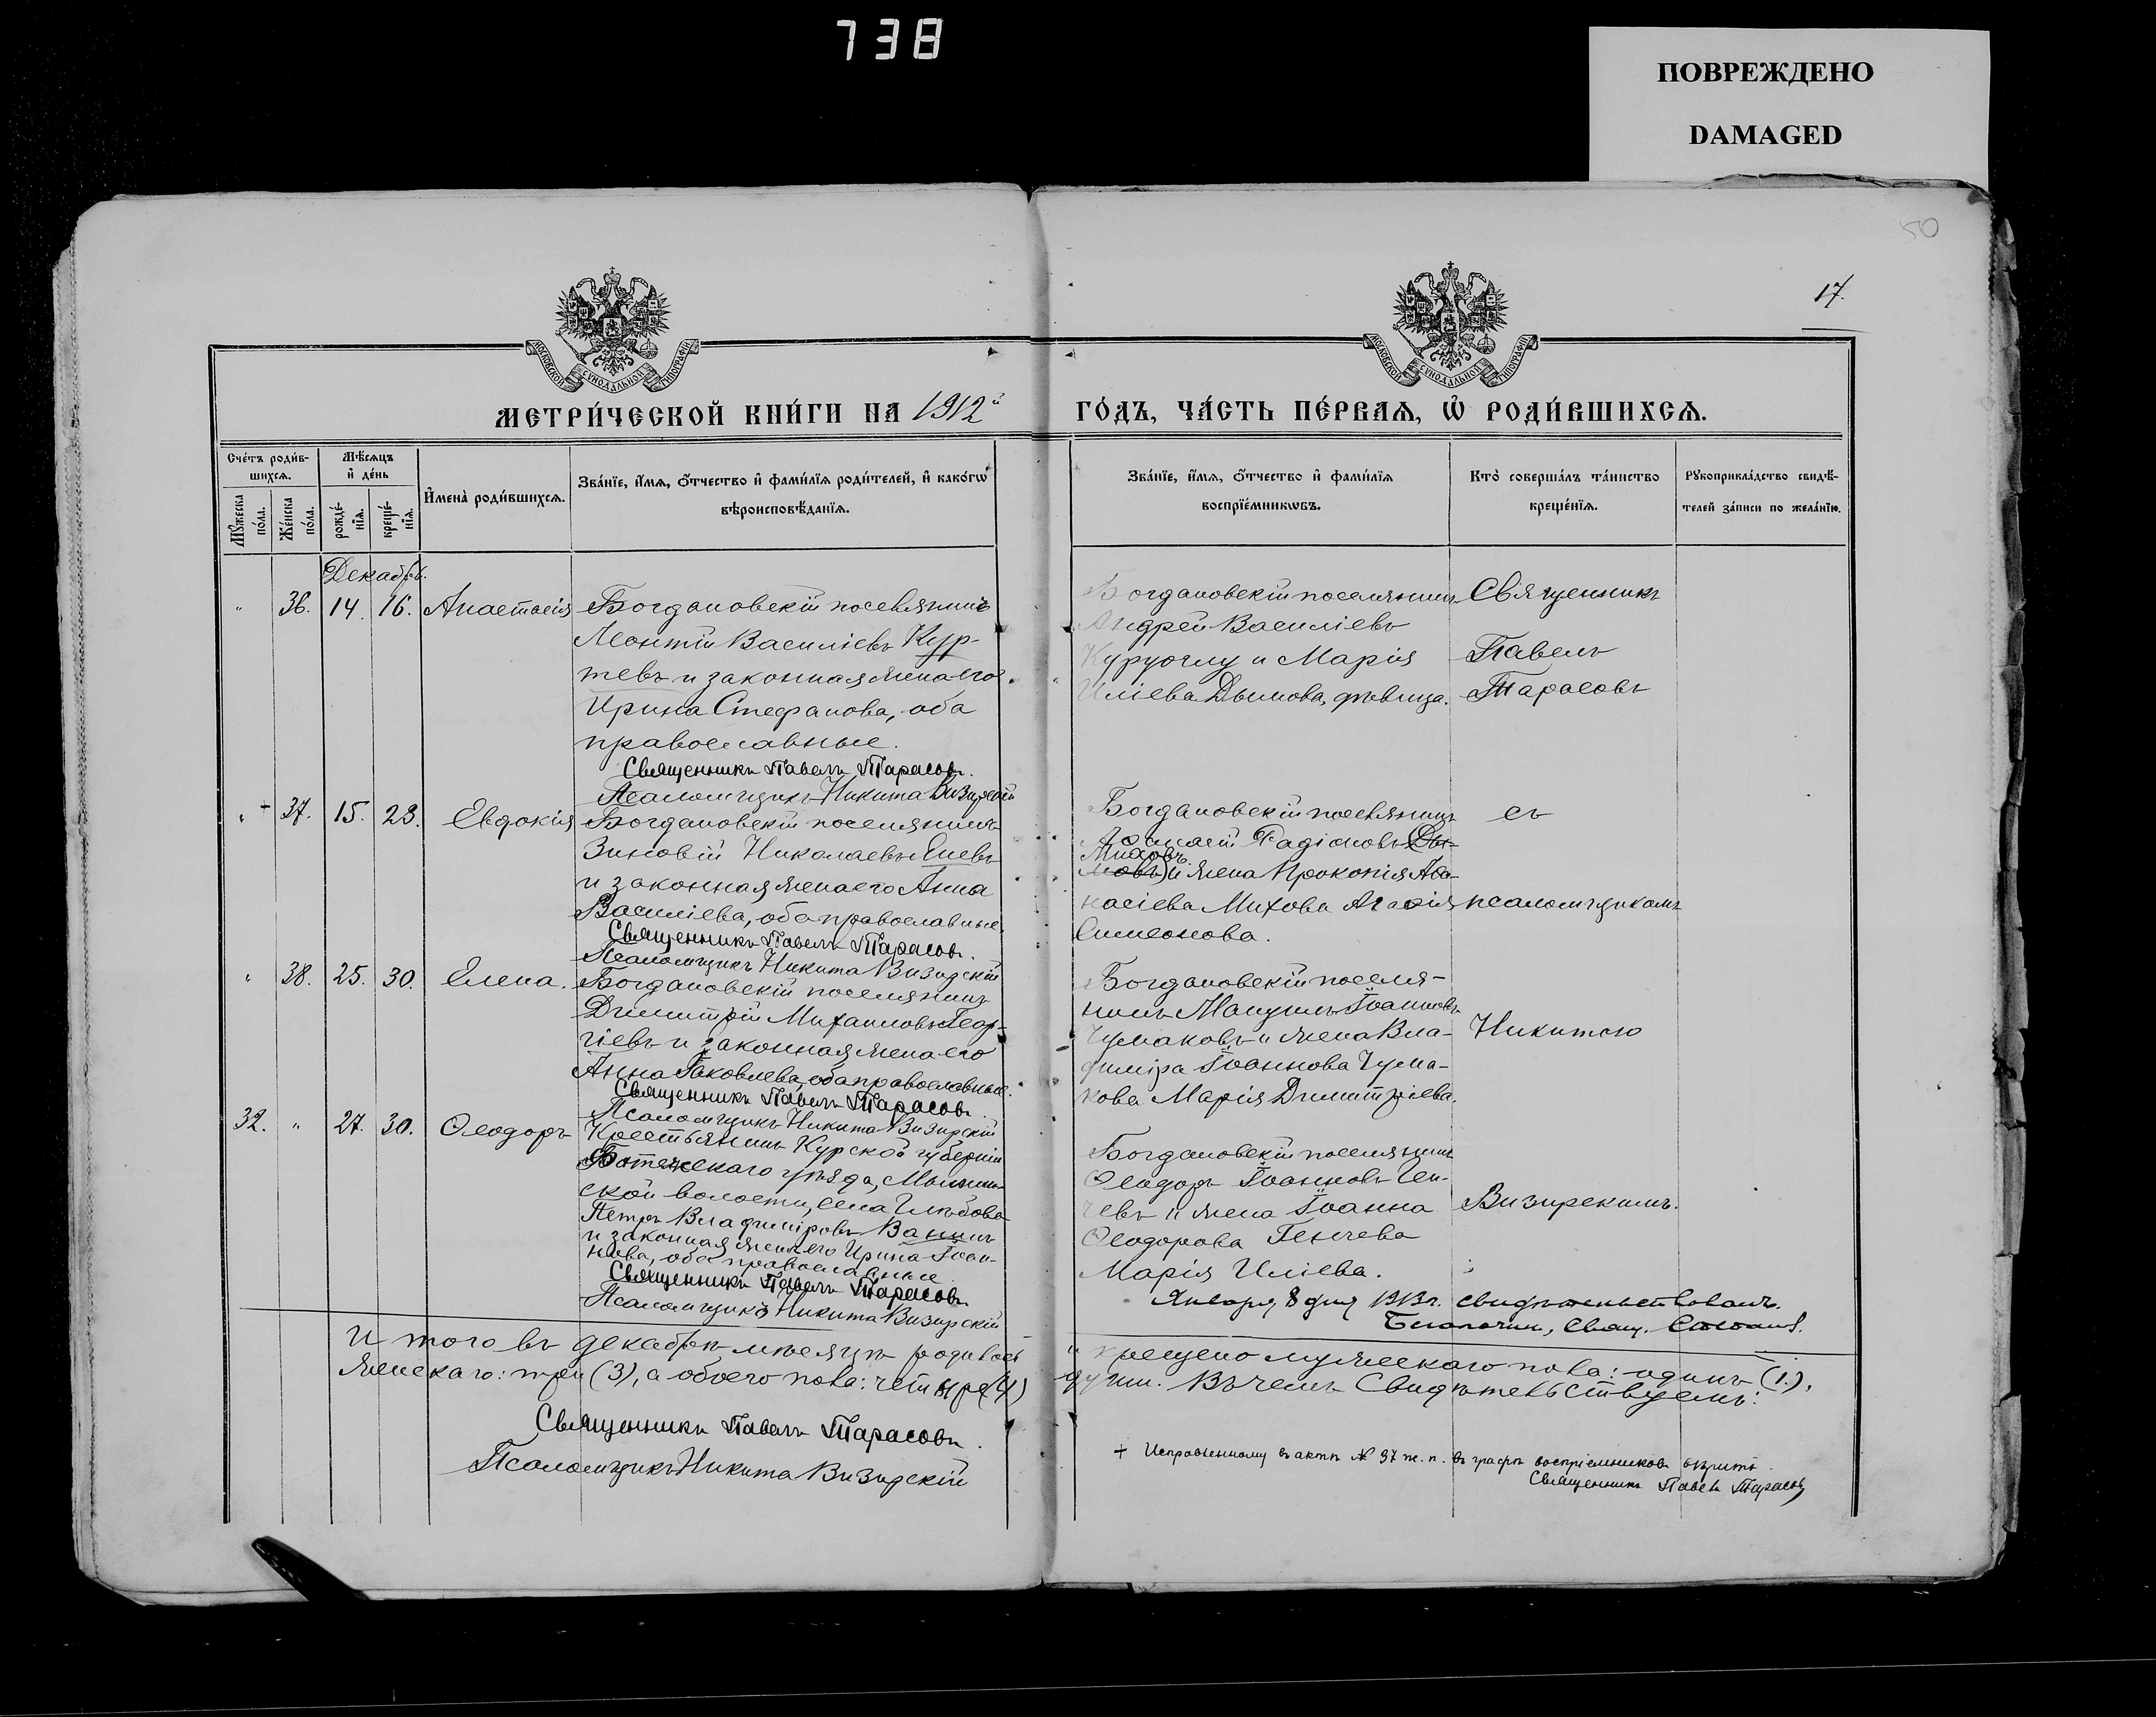 738
ПОВРЕЖДЕНО
DAMAGED
50
17.
МОСКОВСКОЙ СѴНОДАЛЬНОЙ ТИПОГРАФІИ
МОСКОВСКОЙ СѴНОДАЛЬНОЙ ТИПОГРАФІИ
МЕТРИ́ЧЕСКОЙ КНИ́ГИ НА 1912й
ГО́ДЪ, ЧА́СТЬ ПЕ́РВАѦ, Ѡ҆ РОДИ́ВШИХСѦ.
Сче́тъ роди́в-
шихсѧ.
Мꙋ́жеска по́ла.
Же́нска по́ла.
Мѣ́сѧцъ
и҆ де́нь
рожде́-
нїѧ.
креще́-
нїѧ.
И҆мена̀ роди́вшихсѧ.
Зва́нїе, и҆́мѧ, ѻ҆́тчество и҆ фами́лїѧ роди́телей, и҆ како́гѡ
вѣроисповѣ́данїѧ.
Зва́нїе, и҆́мѧ, ѻ҆́тчество и҆ фами́лїѧ
воспрїе́мникѡвъ.
Кто̀ соверша́лъ та́инство
креще́нїѧ.
Рꙋкоприкла́дство свидѣ́-
телей за́писи по жела́нїю.
Декабрь.
" 36. 14. 16. Анастасія
Богдановскій поселянинъ
Леонтій Василіевъ Кур-
тевъ и законная жена его
Ирина Стефанова, оба
православные.
Священникъ Павелъ Тарасовъ.
Псаломщикъ Никита Визирскій
Богдановскій поселянинъ
Андрей Василіевъ
Куруоглу и Марія
Иліева Дымова, дѣвица.
Священникъ
Павелъ
Тарасовъ
" + 37. 15. 23. Евдокія
Богдановскій поселянинъ
Зиновій Николаевъ Еневъ
и законная жена его Анна
Василіева, оба православные.
Священникъ Павелъ Тарасовъ.
Псаломщикъ Никита Визирскій
Богдановскій поселянинъ
Аѳанасій Радіоновъ Ды-
Миховъ.
мовъ) и жена Прокопія Аѳа-
насіева Михова Агаѳія
Симеонова.
съ
псаломщикомъ
" 38. 25. 30. Елена.
Богдановскій поселянинъ
Димитрій Михаиловъ Геор-
гіевъ и законная жена его
Анна Іаковлева, оба православные.
Священникъ Павелъ Тарасовъ.
Псаломщикъ Никита Визирскій
Богдановскій поселя-
нинъ Мануилъ Іоанновъ
Чумаковъ и жена Вла-
диміра Іоаннова Чума-
кова Марія Димитріева.
Никитою
32. " 27. 30. Ѳеодоръ
Крестьянинъ Курской губерніи
уѣзда,
ской волости, села Глѣбова
Петръ Владиміровъ Ванинъ
и законная жена его Ирина Іоан-
нова, оба православные.
Священникъ Павелъ Тарасовъ
Псаломщикъ Никита Визирскій
Богдановскій поселянинъ
Ѳеодоръ Іоанновъ Ген-
чевъ и жена Іоанна
Ѳеодорова Генчева
Марія Иліева.
Визирскимъ.
Января 8 дня 1913 г. свидѣтельствовалъ.
Благочин., Свящ.
Итого въ декабрѣ мѣсяцѣ родилось
и крещено мужескаго пола: одинъ (1.),
женскаго: три (3), а обоего пола: четыре (4)
души. Въ чемъ Свидѣтельствуемъ:
Священникъ Павелъ Тарасовъ.
Псаломщикъ Никита Визирскій
+ Исправленному въ актѣ № 37 ж. п. въ графѣ воспріемниковъ вѣрить.
Священникъ Павелъ Тарасовъ